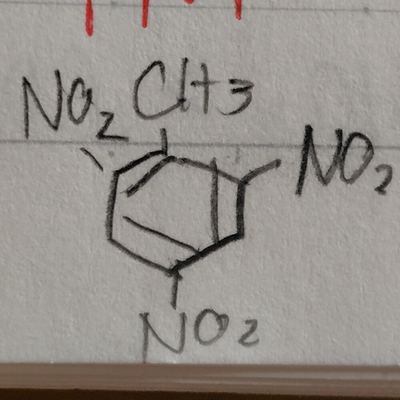 NO₂ CH3
NO₂
NO₂